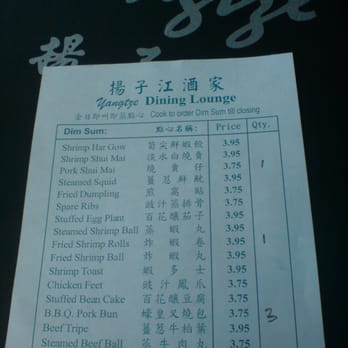 揚子江酒家
Yangtze Dining Lounge
全日即叫即蒸點心 Cook to order Dim Sum till closing
Dim Sum: 點心名稱: Price Qty.
Shrimp Har Gow 筍尖鮮蝦餃 3.95
Shrimp Shui Mai 淡水白燒賣 3.95 1
Pork Shui Mai 燒賣仔 3.75
Steamed Squid 薑葱鮮魷 3.95
Fried Dumpling 煎窩貼 3.75
Spare Ribs 豉汁蒸排骨 3.75
Stuffed Egg Plant 百花釀茄子 3.75
Steamed Shrimp Ball 蒸蝦丸 3.95
Fried Shrimp Rolls 炸蝦卷 3.95 1
Fried Shrimp Ball 炸蝦丸 3.95
Shrimp Toast 蝦多士 3.95
Chicken Feet 豉汁鳳爪 3.75
Stuffed Bean Cake 百花釀豆腐 3.75
B.B.Q. Pork Bun 蠔皇叉燒包 3.75 3
Beef Tripe 薑葱牛柏葉 3.75
Steamed Beef Ball 蒸牛肉丸 3.75